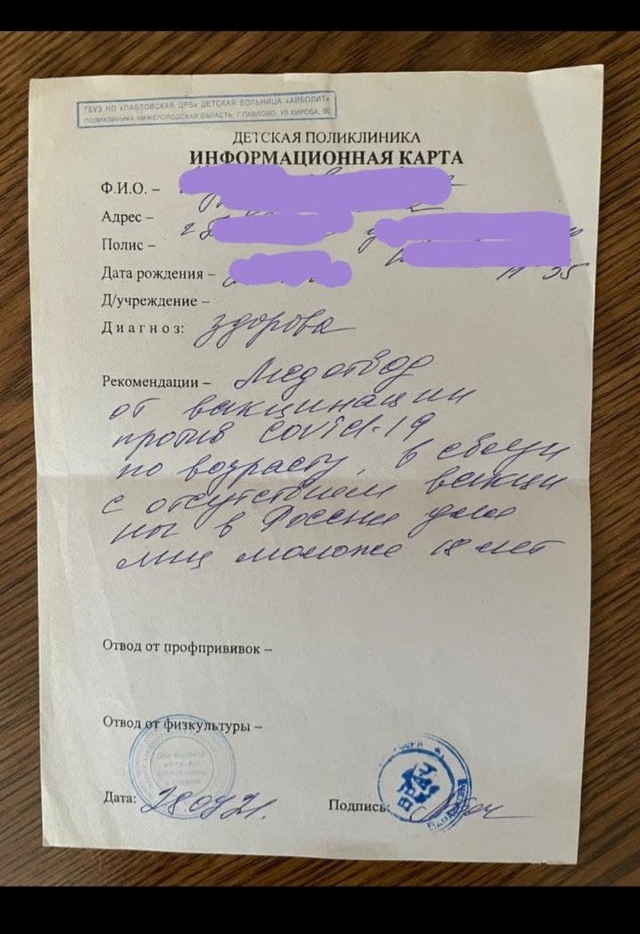 ГБУЗ НО «ПАВЛОВСКАЯ ЦРБ» ДЕТСКАЯ БОЛЬНИЦА «АЙБОЛИТ»
ПОЛИКЛИНИКА НИЖЕГОРОДСКАЯ ОБЛАСТЬ, Г.ПАВЛОВО, УЛ.КИРОВА, 60
ДЕТСКАЯ ПОЛИКЛИНИКА
ИНФОРМАЦИОННАЯ КАРТА
Ф.И.О. –
Адрес – г
Полис –
Дата рождения –
Д/учреждение –
Диагноз: здорова
Рекомендации – Медотвод
от вакцинации
против covid-19
по возрасту, в связи
с отсутствием вакци
ны в России для
лиц моложе 18 лет
Отвод от профпрививок –
Отвод от физкультуры –
Дата: Подпись:
ВРАЧ